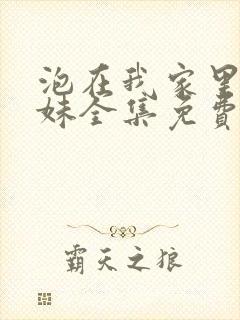 泡在我家里
妹全集免費
霸天之狼